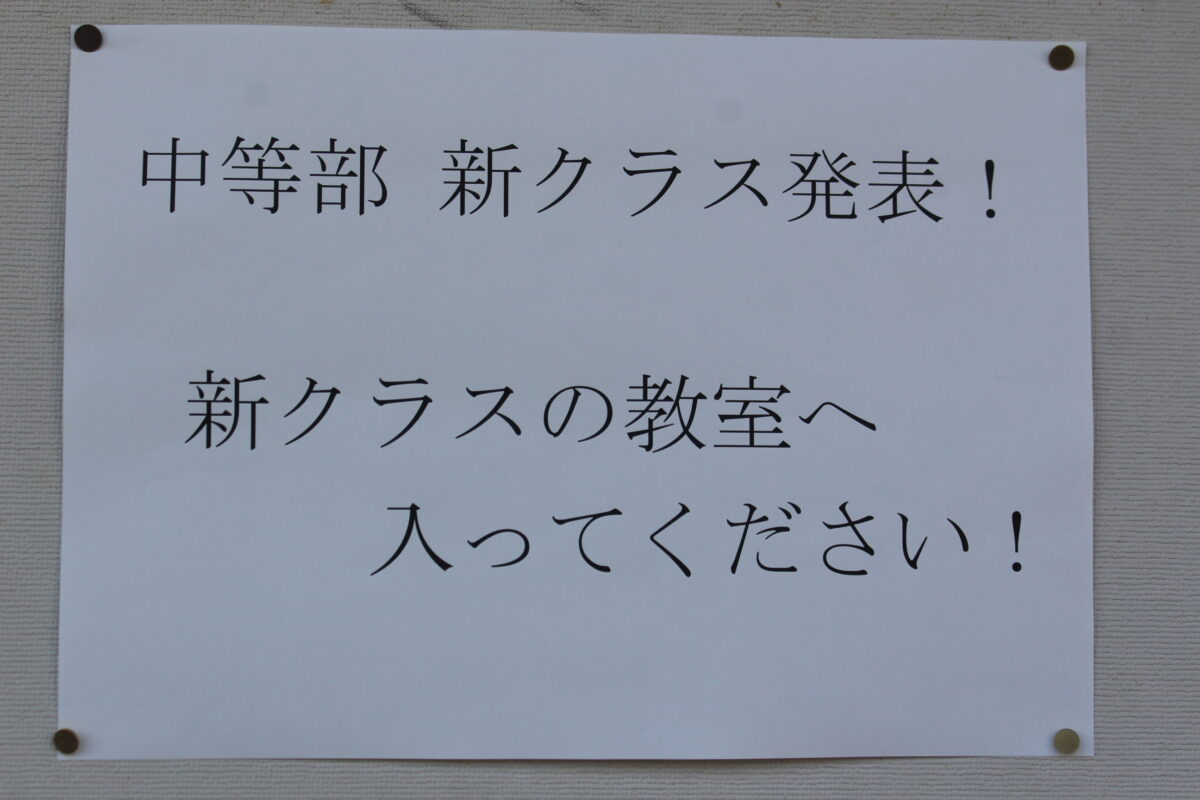 中等部 新クラス発表！
新クラスの教室へ
入ってください！